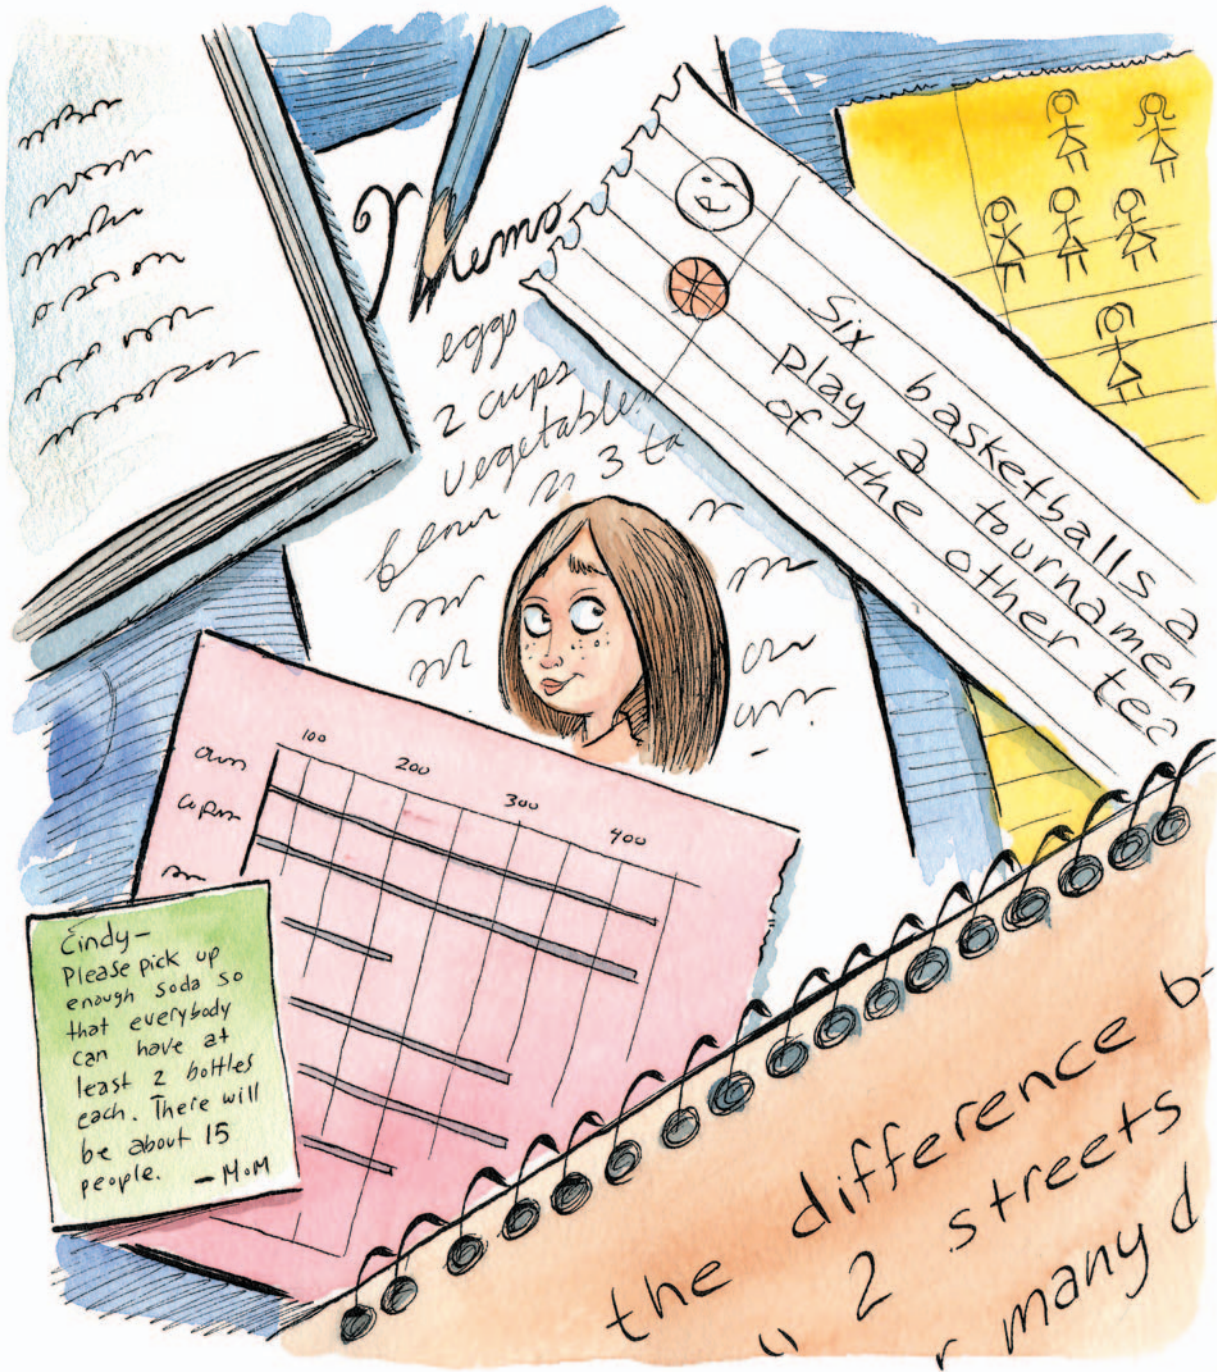 Memo
eggs
2 cups
vegetable
3 ta
Six basketballs a
play a tournamen
of the other tea
100 200 300 400
Cindy—
Please pick up
enough soda so
that everybody
can have at
least 2 bottles
each. There will
be about 15
people. —MOM
the difference b-
2 streets
r many d